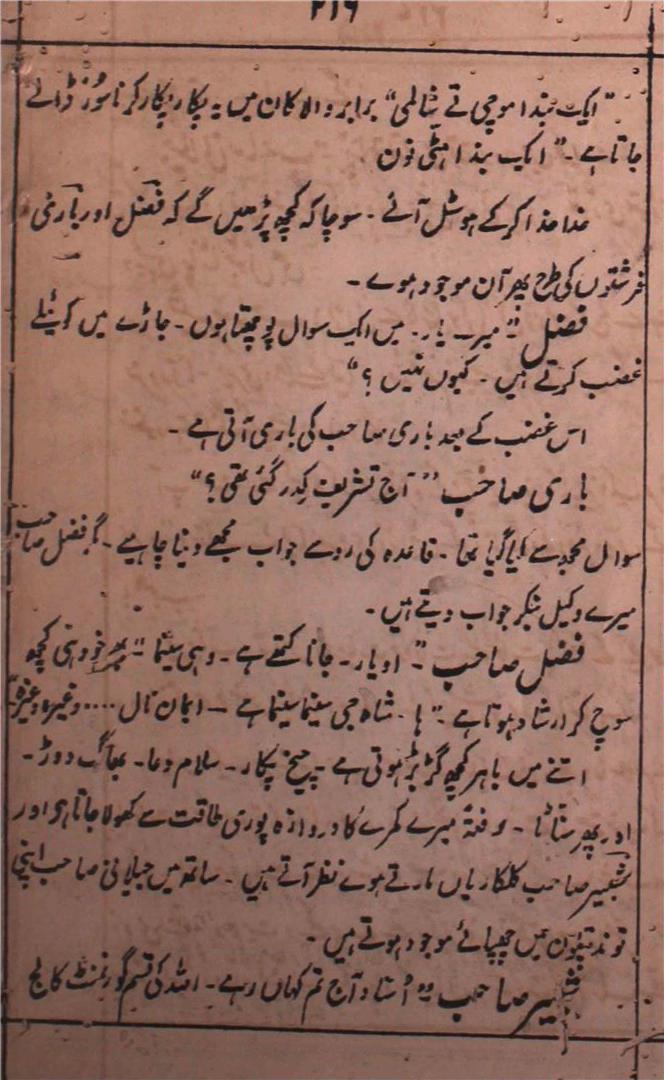 ۲۱۶
"ایک بندا موچی تے شالمی" برابر والا کان میں یہ پکار پکار کر ناسُور ڈالے
جاتا ہے۔ "ایک بندا ہٹی نون
خدا خدا کر کے ہوسٹل آئے۔ سوچا کہ کچھ پڑھیں گے کہ فضل اور باری
فرشتوں کی طرح پھر آن موجود ہوے۔
فضل "میرے یار۔ میں ایک سوال پوچھتا ہوں۔ جاڑے میں کوئلے
غضب کرتے ہیں۔ کیوں نئیں؟"
اس غضب کے بعد باری صاحب کی باری آتی ہے۔
باری صاحب "آج تشریف کدر گئی تھی؟"
سوال مجھ سے کیا گیا تھا۔ قاعدہ کی رو سے جواب مجھے دینا چاہیے۔ مگر فضل صاحب
میرے وکیل بنکر جواب دیتے ہیں۔
فضل صاحب "او یار۔ جانا کتھے ہے۔ وہی سینما" پھر خود ہی کچھ
سوچ کر ارشاد ہوتا ہے "ہا۔ شاہ جی سینما سینما ہے — ایمان نال .... وغیرہ وغیرہ"
اتنے میں باہر کچھ گڑبڑ ہوتی ہے۔ چیخ پکار۔ سلام دعا۔ بھاگ دوڑ۔
اور پھر سناٹا۔ دفعۃً میرے کمرے کا دروازہ پوری طاقت سے کھولا جاتا ہے اور
شبیر صاحب کلکاریاں مارتے ہوے نظر آتے ہیں۔ ساتھ میں جیلانی صاحب اپنی
توند پتلون میں چھپائے موجود ہوتے ہیں۔
شبیر صاحب "اُستاد آج تم کہاں رہے۔ اللہ کی قسم گورنمنٹ کالج